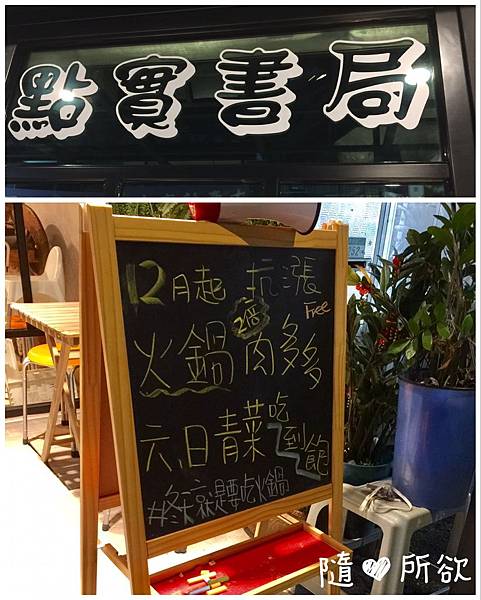 點實書局
12月起 抗漲
Free
火鍋 2倍 肉多多
六、日青菜吃到飽
#冬天就是要吃火鍋
隨♥所欲